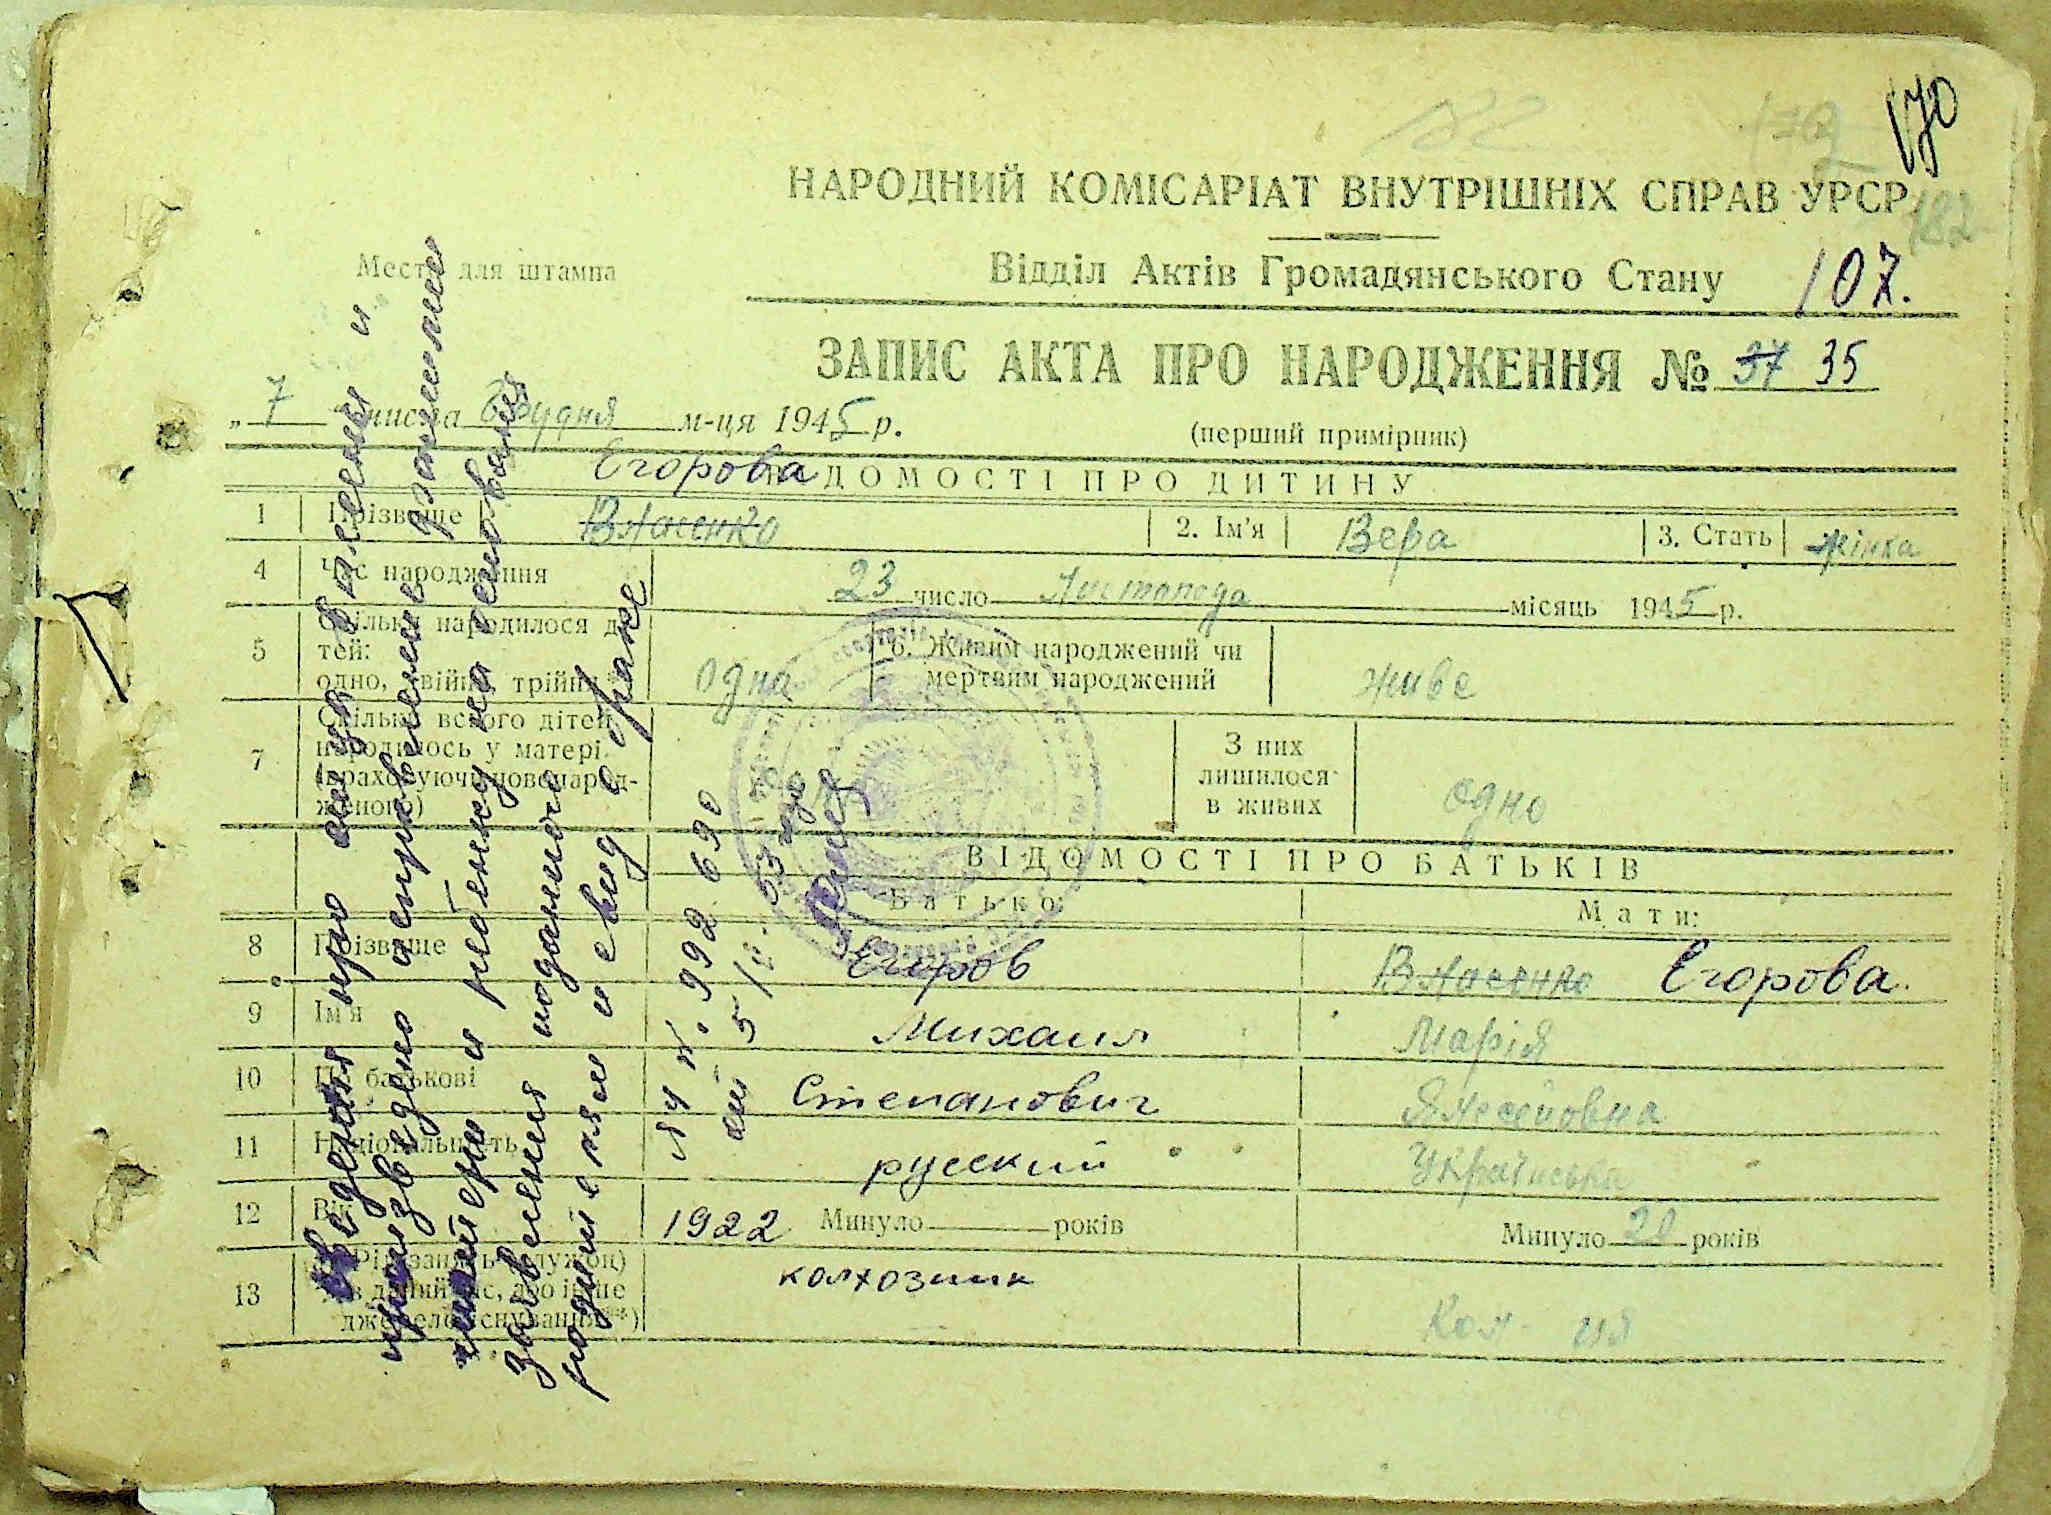 170
182
НАРОДНИЙ КОМІСАРІАТ ВНУТРІШНІХ СПРАВ УРСР
Место для штампа
Відділ Актів Громадянського Стану 107.
ЗАПИС АКТА ПРО НАРОДЖЕННЯ № 37 35
„7 числа Грудня м-ця 1945 р.
(перший примірник)
ВІДОМОСТІ ПРО ДИТИНУ
Егорова
1 Прізвище Власенко 2. Ім'я Вера 3. Стать жінка
4 Час народження 23 число Листопода місяць 1945 р.
5 Скільки народилося дітей: одно, двійня, трійня*) одна 6. Живим народжений чи мертвим народжений живе
7 Скільки всього дітей народилось у матері (враховуючи новонародженого) З них лишилося в живих одно
ВІДОМОСТІ ПРО БАТЬКІВ
Батько: Мати:
8 Прізвище Егоров Власенко Егорова
9 Ім'я Михаил Марія
10 По батькові Степанович
11 Національність русский Українська
12 Вік 1922 Минуло років Минуло 20 років
13 Рід занять (служби) в даний час, або інше джерело існування**) колхозник Кол-ця
Сведения про отца внесены и
произведено исправление фамилии
матери и ребенку на основании
заявления поданного
родителями и свид о браке
ЛЧ № 992690
от 5/